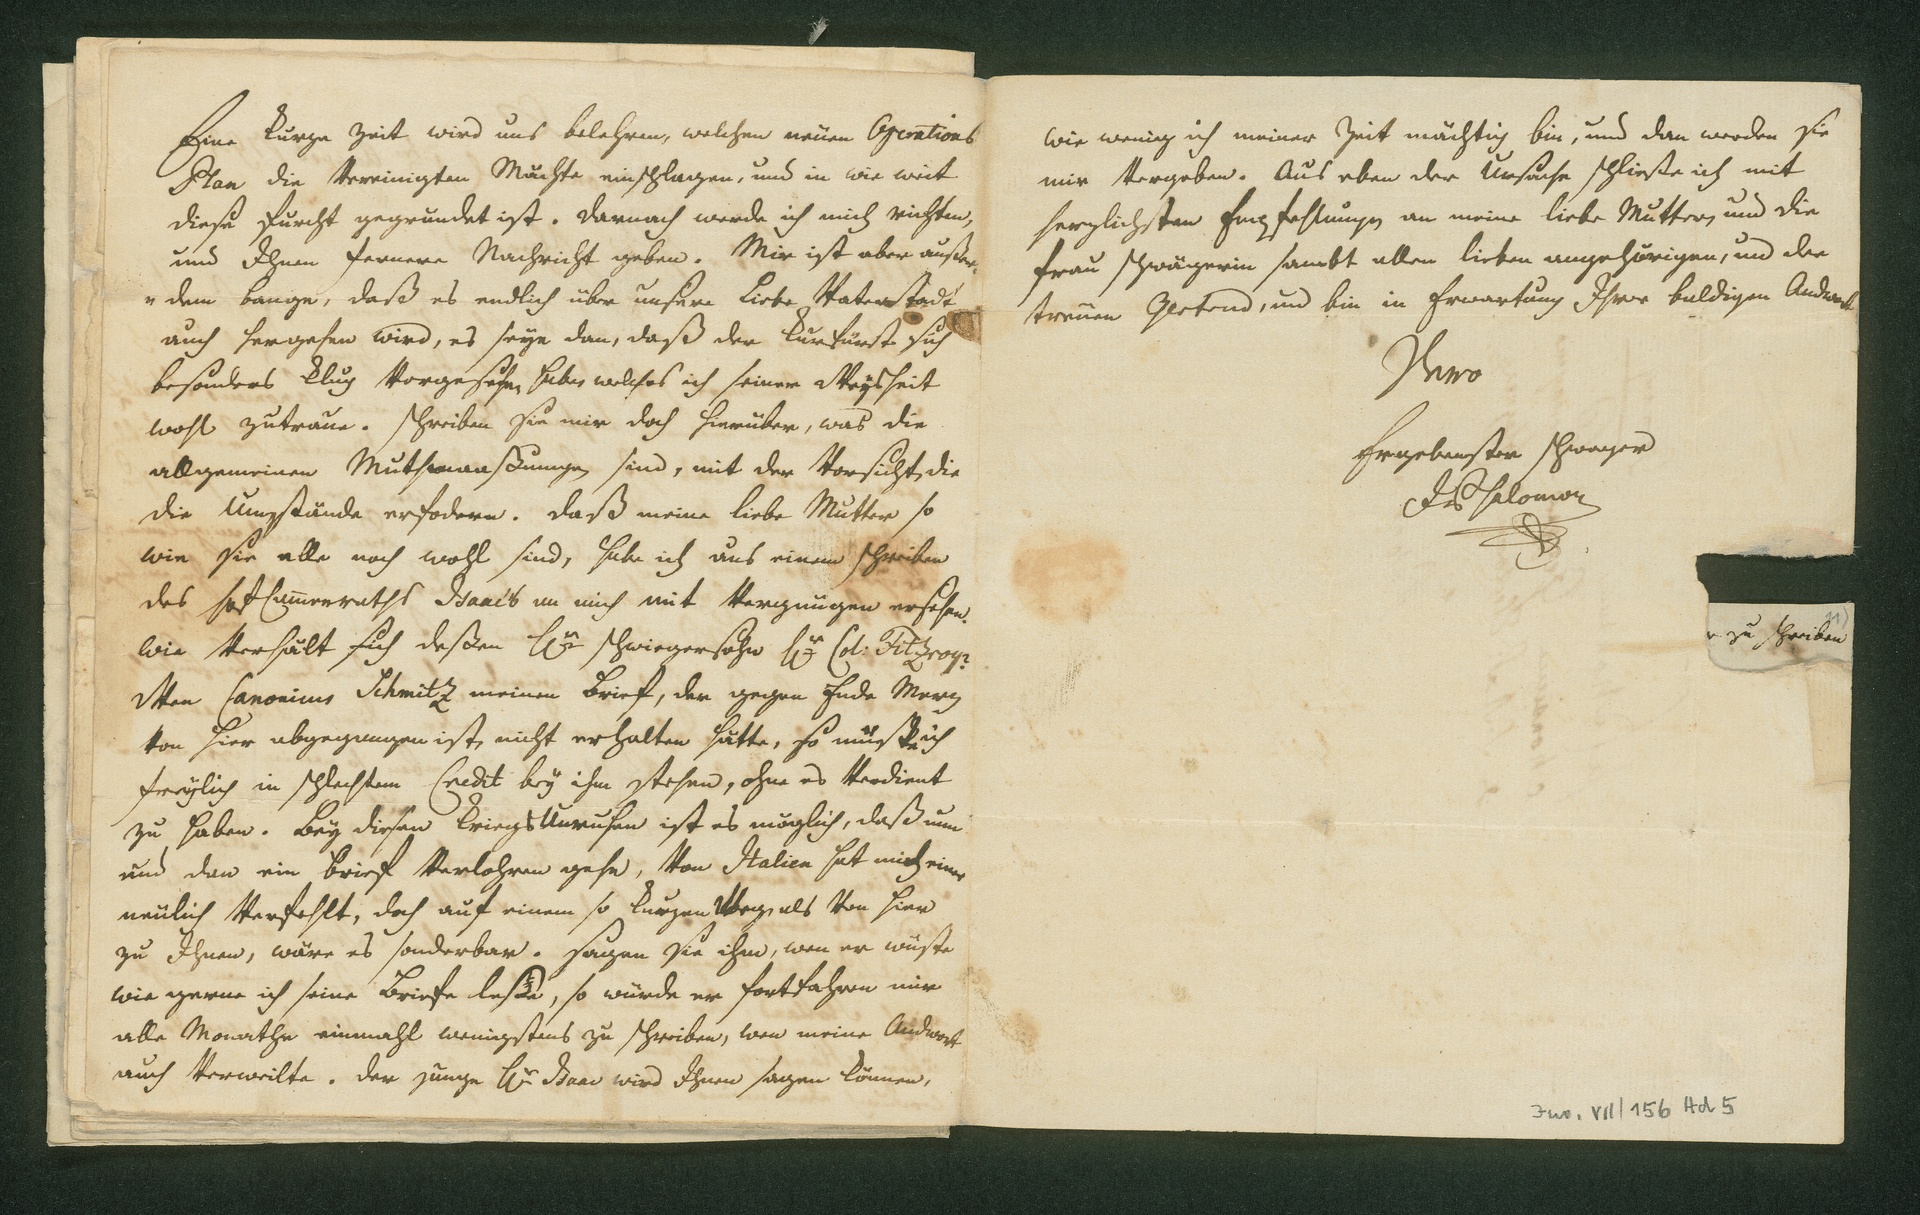 Eine kurze Zeit wird uns belehren, welchen neuen Operations
Plan die Vereinigten Mächte einschlagen, und in wie weit
diese Furcht gegrundet ist. Darnach werde ich mich richten,
und Ihnen fernere Nachricht geben. Mir ist aber außer-
" dem bange, daß es endlich über unsere liebe Vaterstadt
auch hergehen wird, es seye dan, daß der Kurfürst sich
besonders klug Vorgesehen habe welches ich seiner Weysheit
wohl zutraue. schreiben sie mir doch hierüber, was die
allgemeinen Muthmaaßungen sind, mit der Vorsicht, die
die Umstände erfodern. Daß meine liebe Mutter so
wie sie alle noch wohl sind, habe ich aus einem schreiben
des HofCammerraths Isaac's an mich mit Vergnügen ersehen.
wie Verhält sich deßen Hr schwiegersohn Hr Col: Fitzroy?
Wen Canonicus Schmitz meinen Brief, der gegen Ende Merz
von hier abgegangen ist, nicht erhalten hätte, so müßte ich
freylich in schlechtem Credit bey ihm stehen, ohne es Verdient
zu haben. Bey diesen KriegsUnruhen ist es möglich, daß nun
und dan ein Brief Verlohren gehe, Von Italien hat mich einer
neulich Verfehlt, doch auf einem so kurzen Weg als Von hier
zu Ihnen, wäre es sonderbar. sagen sie ihm, wen er wüste
wie gerne ich seine Briefe lese, so würde er fortfahren mir
alle Monathe einmahl wenigstens zu schreiben, wen meine Andwort
auch Verweilte. Der junge Hr Isaac wird Ihnen sagen können,
wie wenig ich meiner Zeit mächtig bin, und dan werden sie
mir Vergeben. Aus eben der Ursache schließe ich mit
herzlichsten Empfehlungen an meine liebe Mutter, und die
Frau schwägerin sambt allen lieben angehörigen, und der
treuen Gertrud, und bin in Erwartung Ihrer baldigen Andwort
Ihro
Ergebenster schwager
JP Salomon
zu schreiben
Inv. VII/156 Hd 5